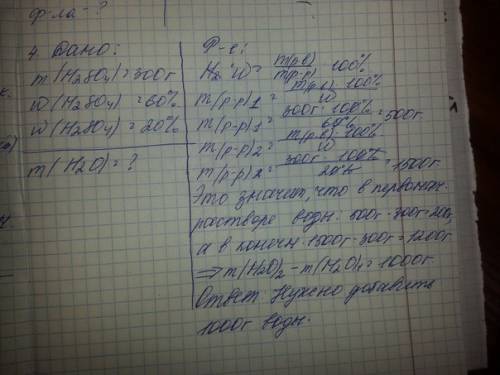 ф-ла - ?
4. Дано:
m(H₂SO₄) = 300г
ω(H₂SO₄) = 60%
ω(H₂SO₄) = 20%
m(H₂O) = ?
Р-е:
ω = m(р.в)/m(р-р) · 100%
m(р-р)₁ = m(р.в) · 100%/ω
m(р-р)₁ = 300г · 100%/60% = 500г.
m(р-р)₂ = m(р.в) · 100%/ω
m(р-р)₂ = 300г · 100%/20% = 1500г.
Это значит, что в первонач.
растворе воды: 500г - 300г = 200г,
а в конечн. 1500г - 300г = 1200г
⇒ m(H₂O)₂ - m(H₂O)₁ = 1000г
Ответ Нужно добавить
1000г воды.